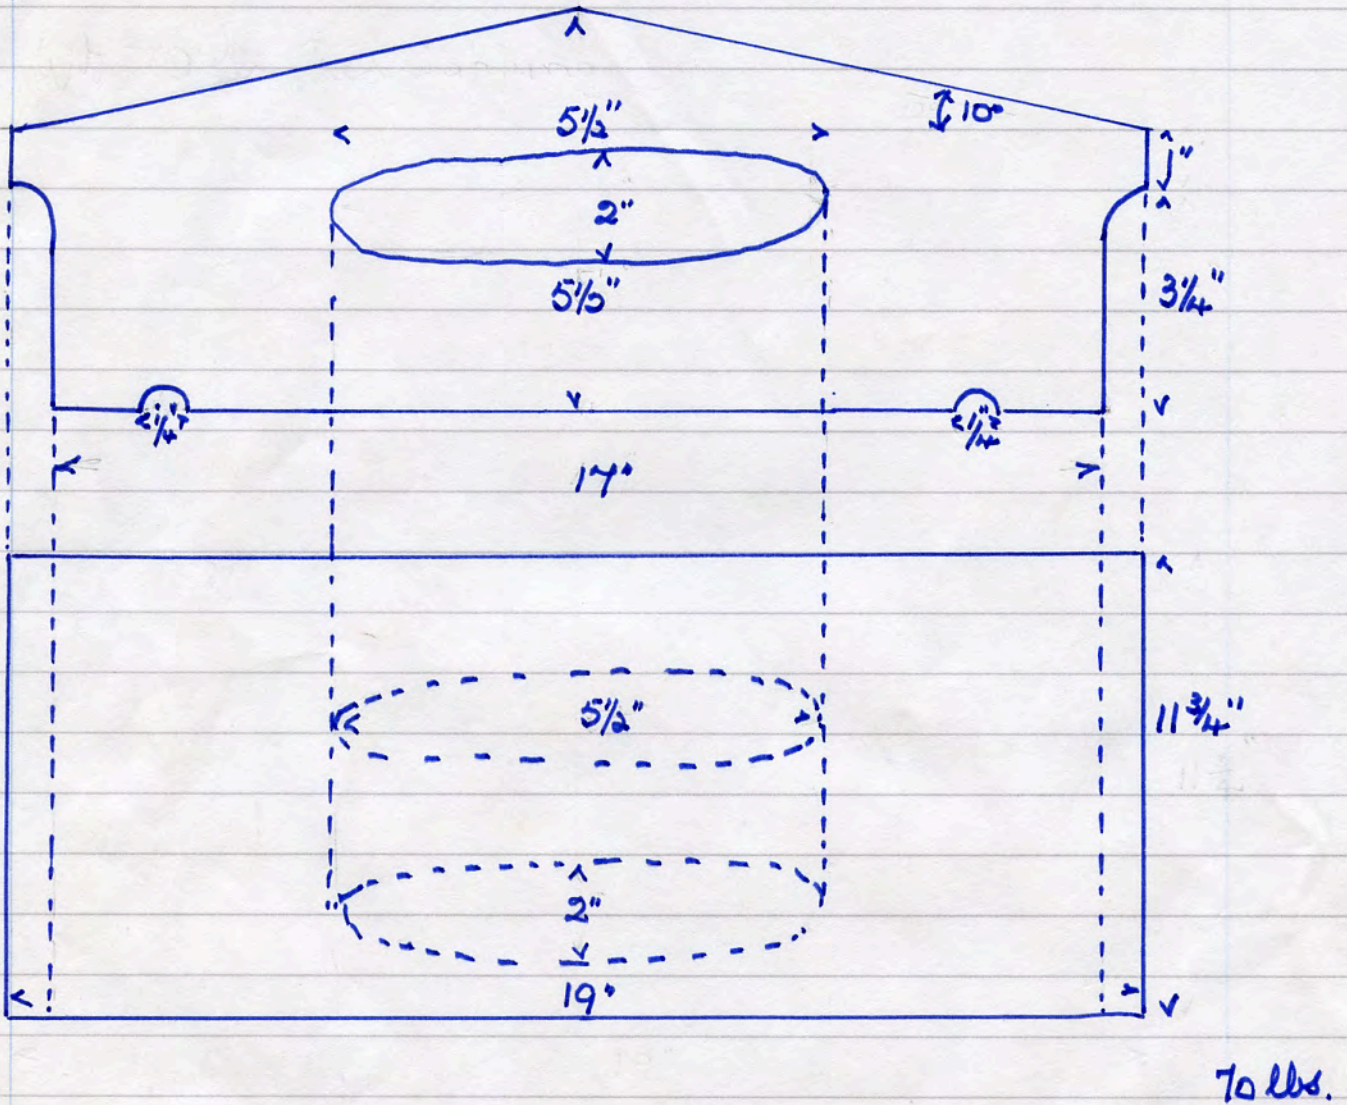 10°
5½"
1"
2"
5½"
3¼"
1¼"
1¼"
17"
5½"
11 ¾"
2"
19"
70 lbs.